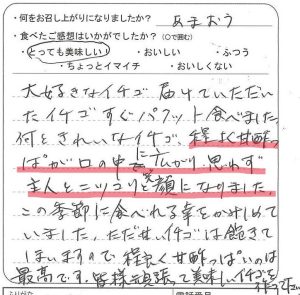 ・何をお召し上がりになりましたか?
あまおう
・食べたご感想はいかがでしたか?(○で囲む)
・とっても美味しい ・おいしい ・ふつう
・ちょっとイマイチ ・おいしくない
大好きなイチゴ届けていただい
たイチゴすぐパクッと食べました
何ときれいなイチゴ、程よく甘酢っ
ぱが口の中に広がり、思わず
主人とニッコリ笑顔になりました。
この季節に食べれる幸をかみしめて
いました。ただせイチゴは飽きて
しまいますので程よく甘酢っぱいのは
最高です。皆様頑張って美味しイチゴを